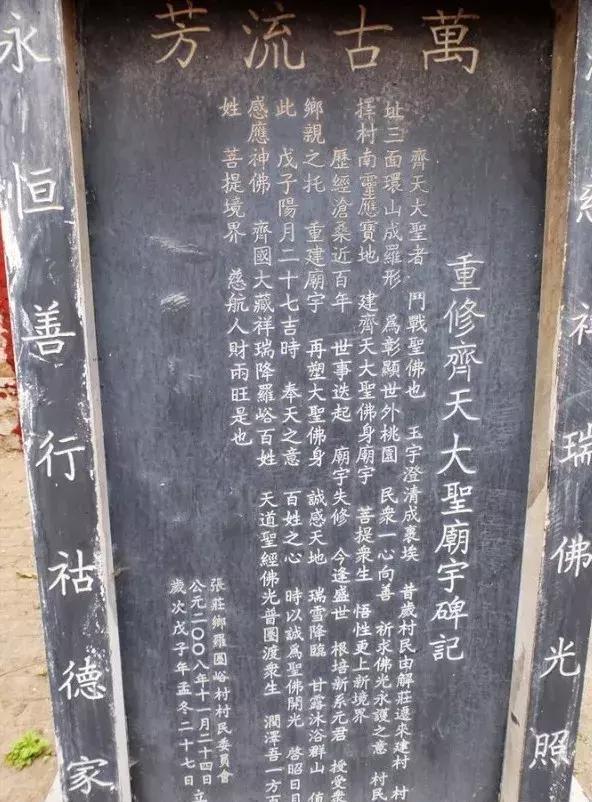 萬古流芳
慈神瑞佛光照
重修齊天大聖廟宇碑記
齊天大聖者 鬥戰聖佛也 玉宇澄清成裹埃 昔歲村民由解莊遷來建村 村
址三面環山成羅形 為彰顯世外桃園 民衆一心向善 祈求佛光永護之意 村民
擇村南靈應寶地 建齊天大聖佛身廟宇 菩提衆生 悟性更上新境界
歷經滄桑近百年 世事迭起 廟宇失修 今逢盛世 根培新系元君 授受衆
鄉親之托 重建廟宇 再塑大聖佛身 誠感天地 瑞雪降臨 甘露沐浴群山 值
此 戊子陽月二十七吉時 奉天之意 百姓之心 時以誠為聖佛開光 啓昭日月
感應神佛 齊國大藏祥瑞降羅峪百姓 天道聖經佛光普圍渡衆生 潤澤吾一方百
姓 菩提境界 慈航人財雨旺是也
張莊鄉羅圈峪村村民委員會
公元二〇〇八年十一月二十四日
歲次戊子年孟冬二十七日 立
永恒善行祜德家